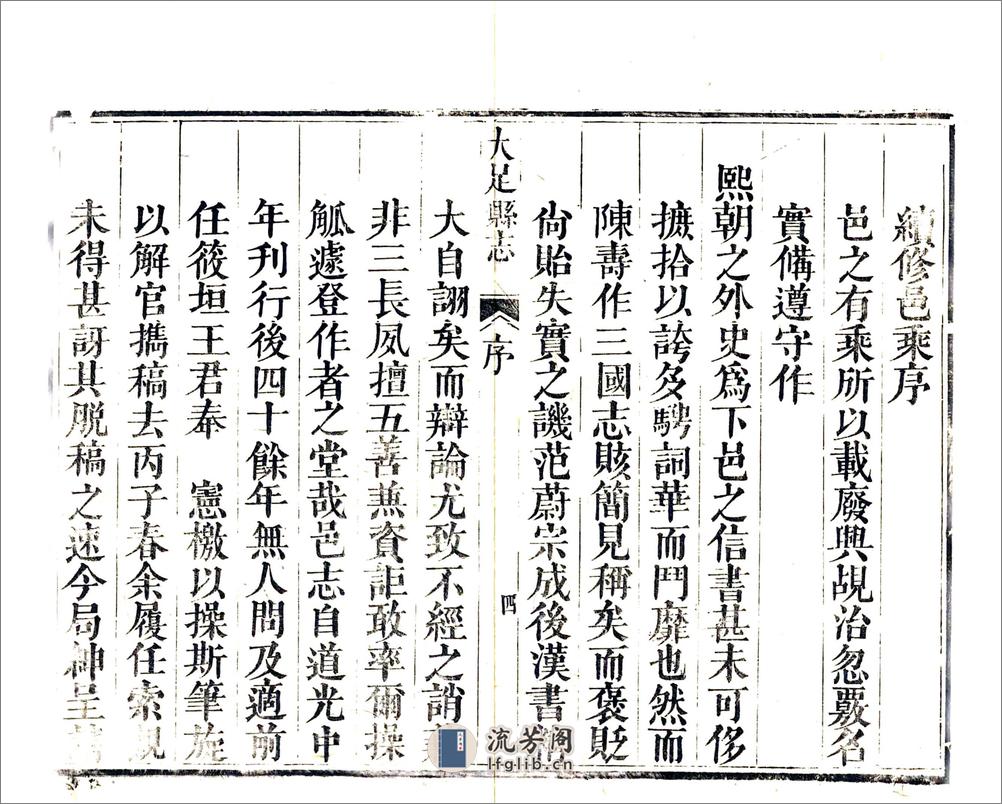 續修邑乘序
邑之有乘所以載廢興覘治忽覈名
實備遵守作
熙朝之外史為下邑之信書甚未可侈
摭拾以誇多騁詞華而鬥靡也然而
陳壽作三國志賅簡見稱矣而褒貶
尙貽失實之譏范蔚宗成後漢書
大足縣志
序
四
大自詡矣而辯論尤致不經之誚
非三長夙擅五善兼資詎敢率爾操
觚遽登作者之堂哉邑志自道光中
年刊行後四十餘年無人問及適前
任筱垣王君奉 憲檄以操斯筆旋
以解官攜稿去丙子春余履任索觀
未得甚訝其脫稿之速今局紳呈
流芳阁
lfglib.cn